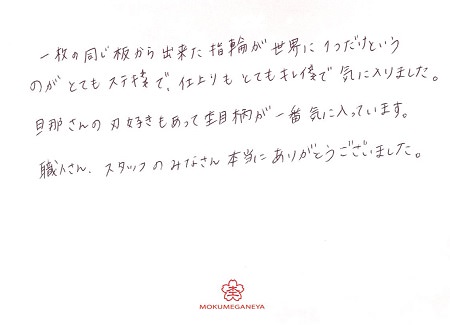 一枚の同じ板から出来た指輪が世界に1つだけという
のがとてもステキ様で、仕上りもとてもキレイ様で気に入りました。
旦那さんの刃好きもあって杢目柄が一番気に入っています。
職人さん、スタッフのみなさん本当にありがとうございました。
MOKUMEGANEYA